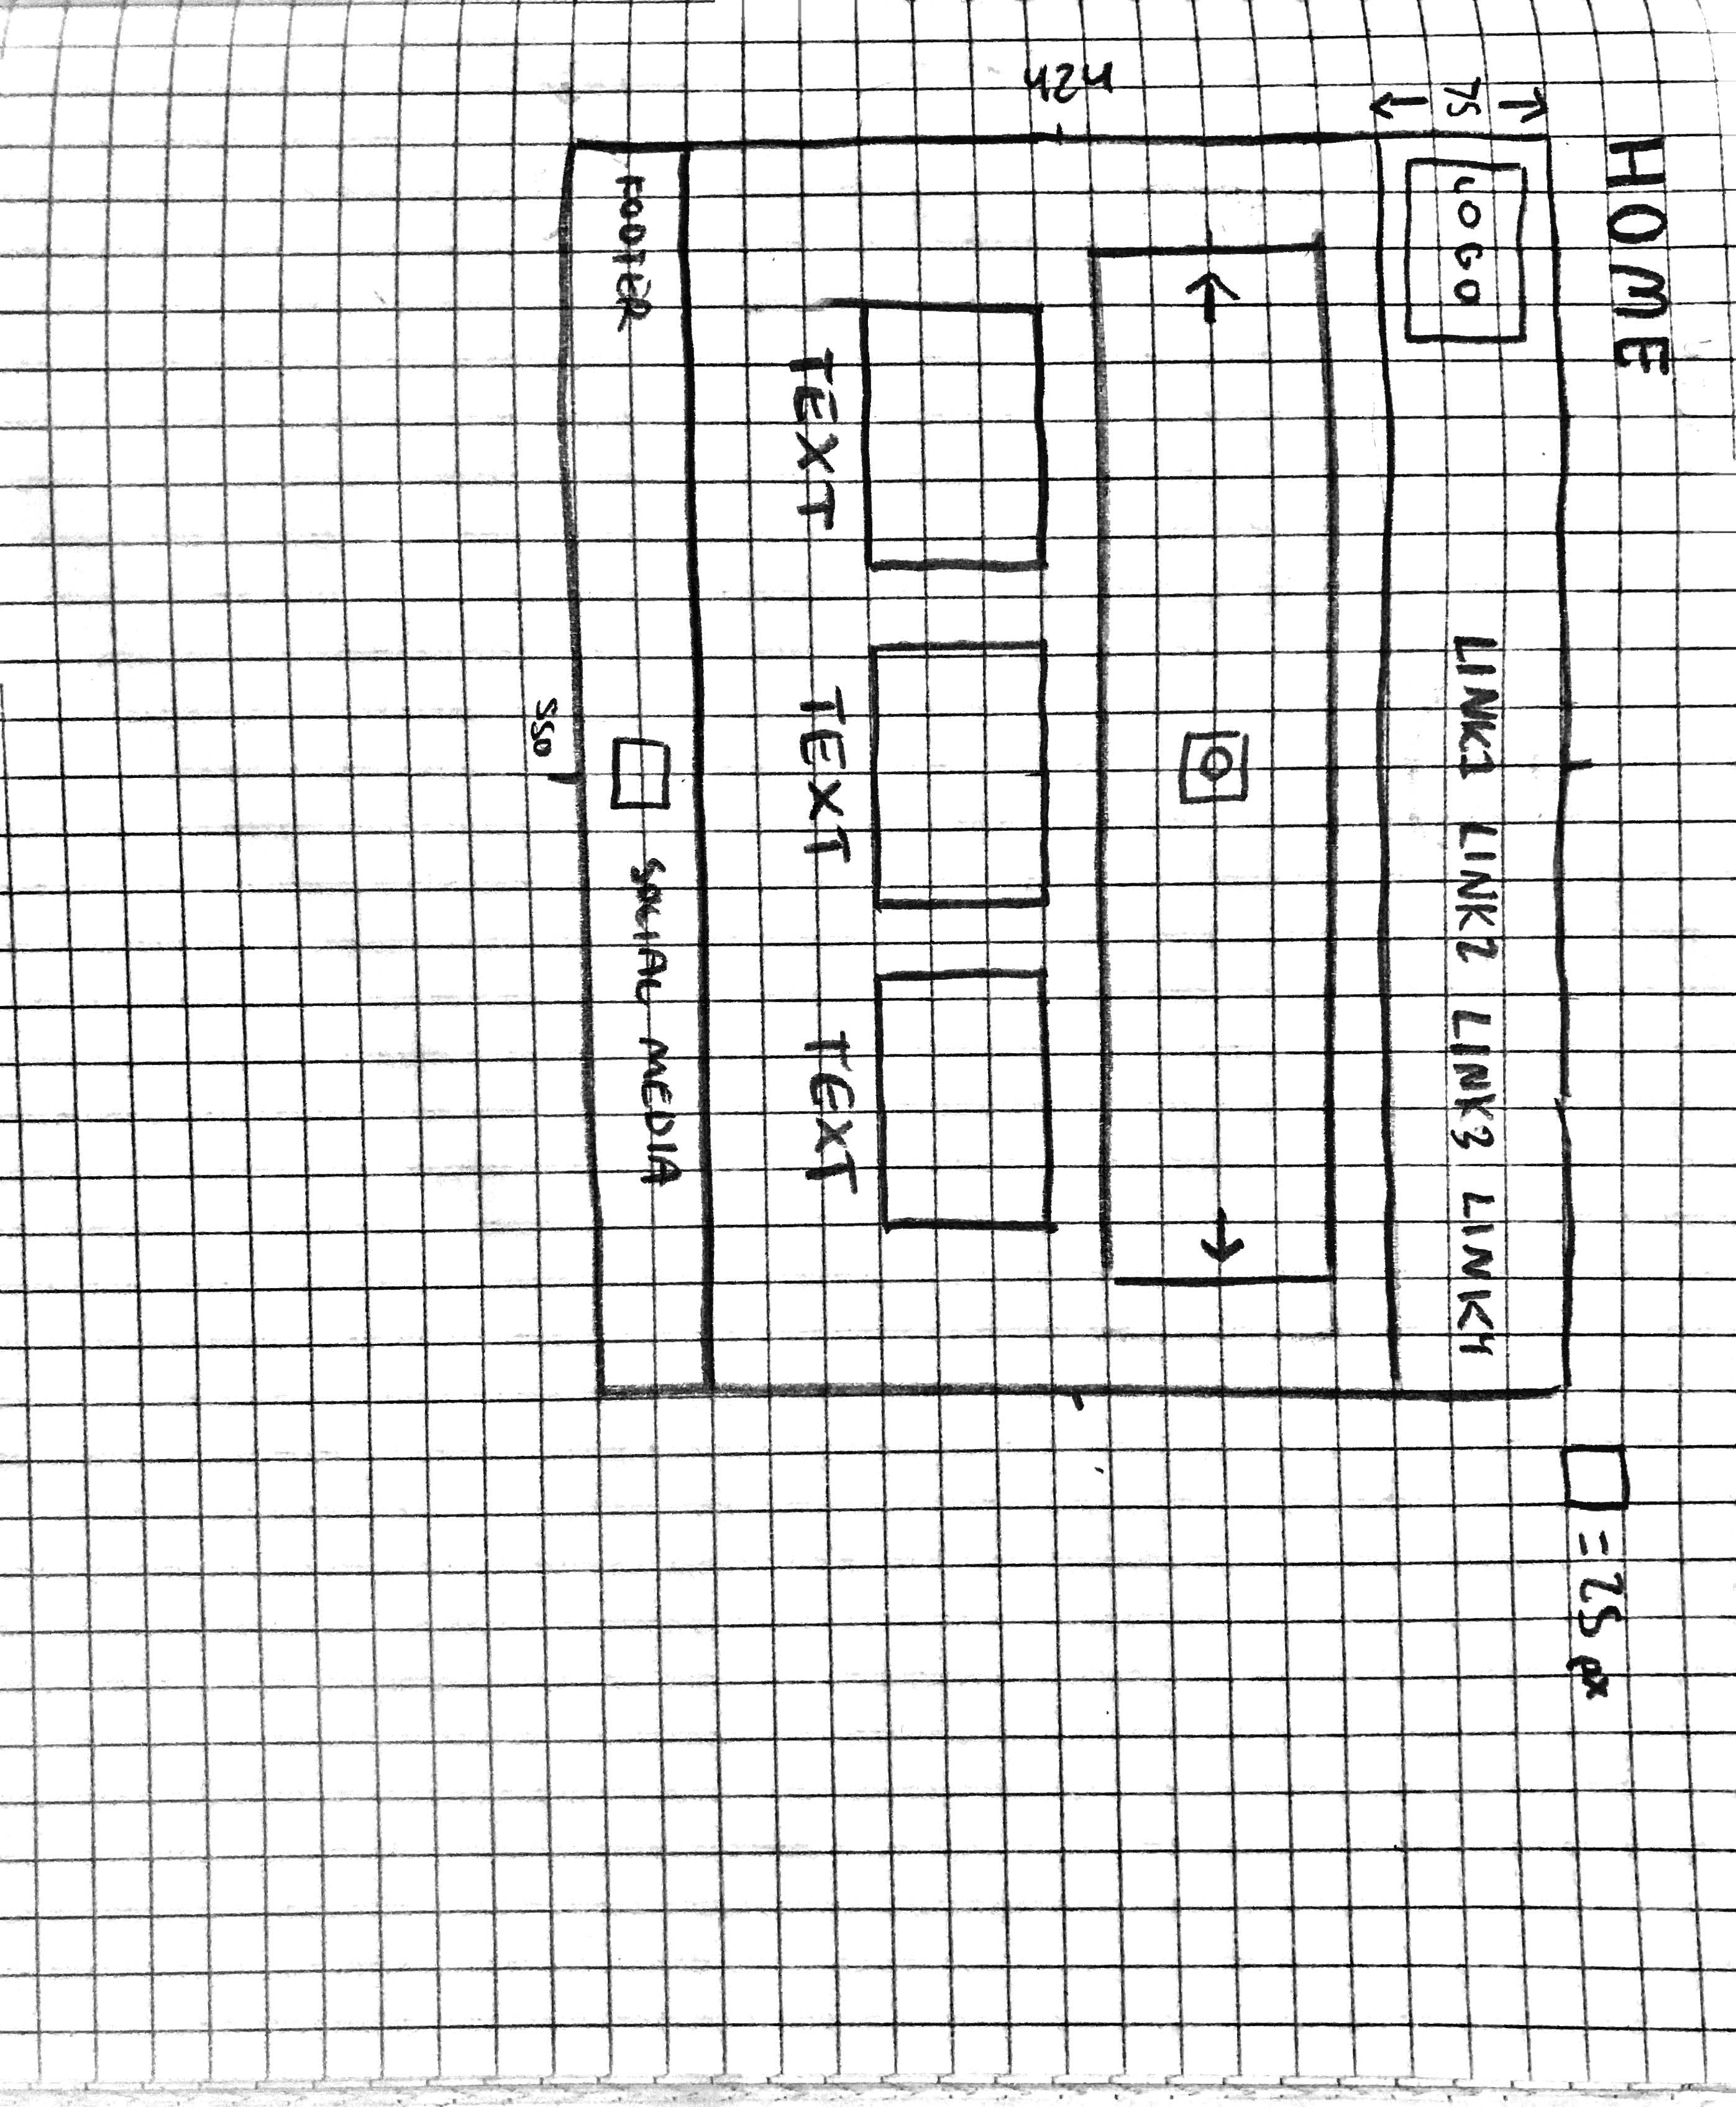 HOME
= 25 px
75
LOGO
LINK1 LINK2 LINK3 LINK4
424
TEXT TEXT TEXT
FOOTER
SOCIAL MEDIA
550